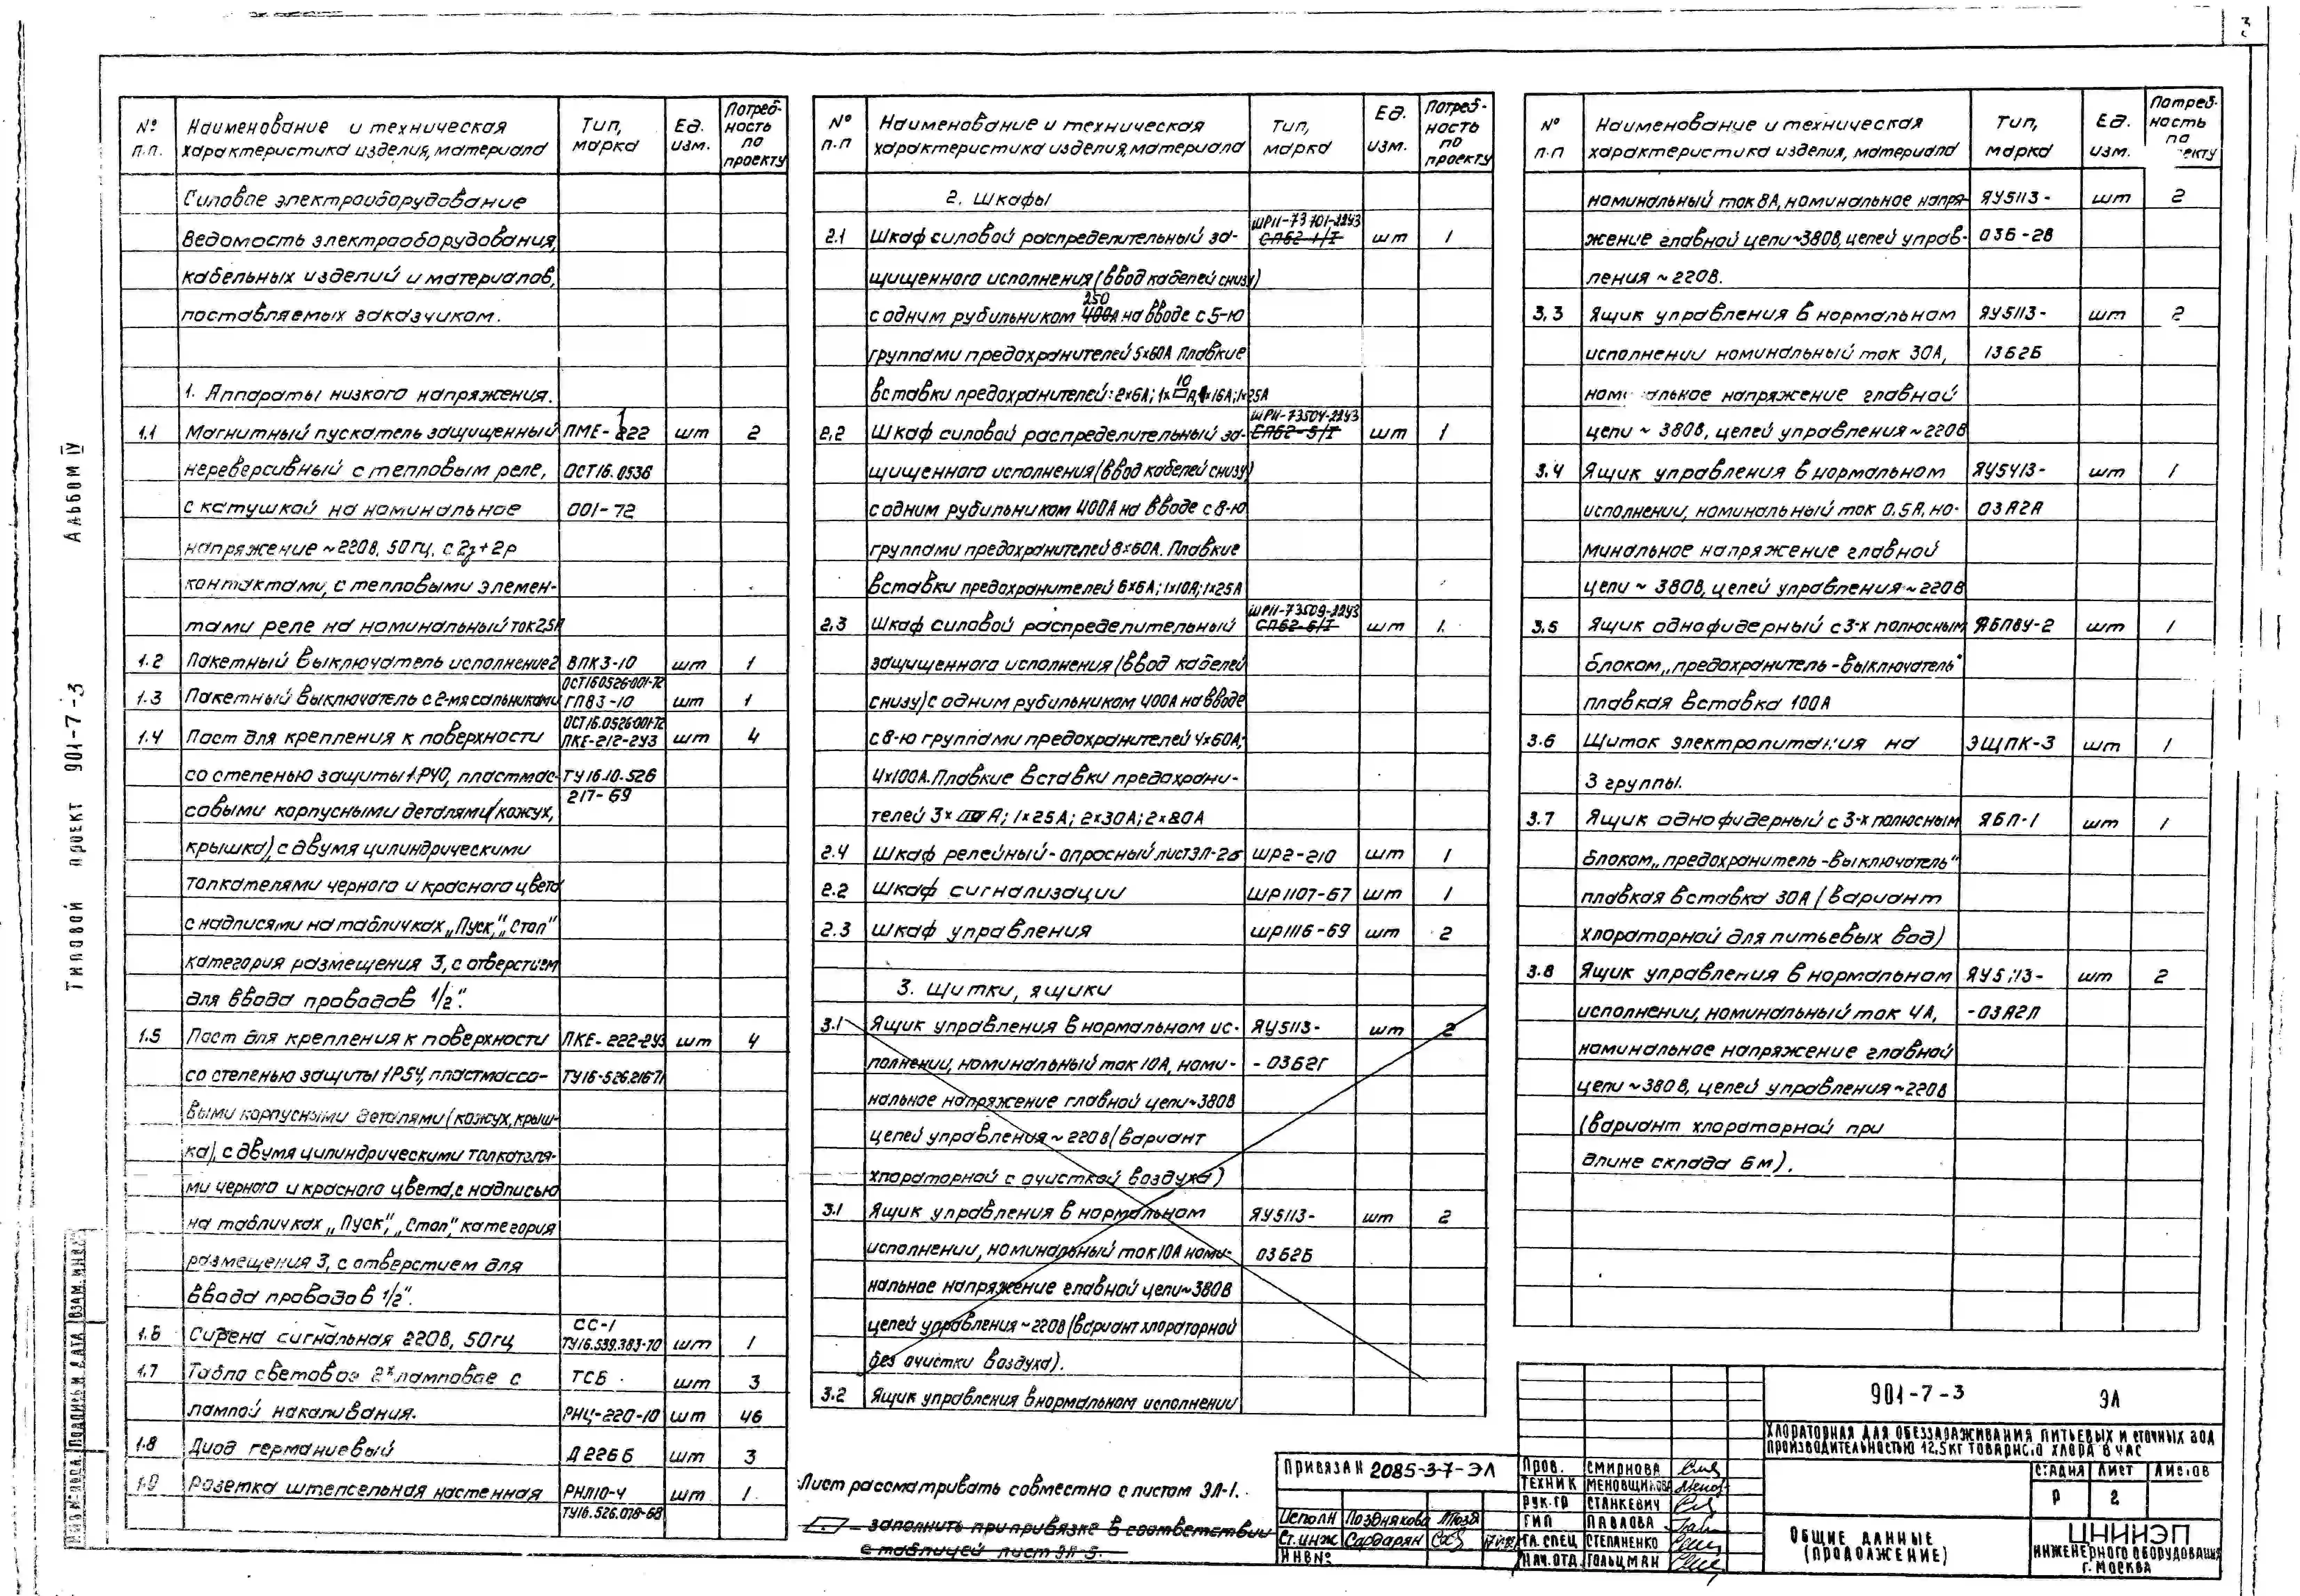 3
АЛЬБОМ IV
ТИПОВОЙ ПРОЕКТ 901-7-3
№ п.п. Наименование и техническая характеристика изделия, материала Тип, марка Ед. изм. Потребность по проекту
Силовое электрооборудование
Ведомость электрооборудования,
кабельных изделий и материалов,
поставляемых заказчиком.
1. Аппараты низкого напряжения.
1.1 Магнитный пускатель защищенный ПМЕ-122 шт 2
нереверсивный с тепловым реле, ОСТ16.0536
с катушкой на номинальное 001-72
напряжение ~220в, 50гц, с 2з+2р
контактами, с тепловыми элемен-
тами реле на номинальный ток 2.5А
1.2 Пакетный выключатель исполнение 2 ВПК3-10 шт 1
ОСТ16.0526.001-72
1.3 Пакетный выключатель с 2-мя сальниками ГПВ3-10 шт 1
ОСТ16.0526.001-72
1.4 Пост для крепления к поверхности ПКЕ-212-2У3 шт 4
со степенью защиты 1Р40, пластмас- ТУ16.10.526
217-69
совыми корпусными деталями (кожух,
крышка), с двумя цилиндрическими
толкателями черного и красного цвета
с надписями на табличках „Пуск", „Стоп"
категория размещения 3, с отверстием
для ввода проводов 1/2".
1.5 Пост для крепления к поверхности ПКЕ-222-2У3 шт 4
со степенью защиты 1Р54, пластмассо- ТУ16-526.216-71
выми корпусными деталями (кожух, крыш-
ка), с двумя цилиндрическими толкателя-
ми черного и красного цвета, с надписью
на табличках „Пуск", „Стоп", категория
размещения 3, с отверстием для
ввода проводов 1/2".
СС-1
1.6 Сирена сигнальная 220в, 50гц ТУ16.539.383-70 шт 1
1.7 Табло световое 2х ламповое с ТСБ шт 3
лампой накаливания. РНЦ-220-10 шт 46
1.8 Диод германиевый Д226Б шт 3
1.9 Розетка штепсельная настенная РНП10-4 шт 1
ТУ16.526.078-68
№ п.п Наименование и техническая характеристика изделия, материала Тип, марка Ед. изм. Потребность по проекту
2. Шкафы
ШР11-73701-22У3
2.1 Шкаф силовой распределительный за- СП62-1/I шт 1
щищенного исполнения (ввод кабелей снизу)
250
с одним рубильником 400А на вводе с 5-ю
группами предохранителей 5х60А Плавкие
10
вставки предохранителей: 2х6А; 1х А, 1х16А; 1х25А
ШР11-73504-22У3
2.2 Шкаф силовой распределительный за- СП62-5/I шт 1
щищенного исполнения (ввод кабелей снизу)
с одним рубильником 400А на вводе с 8-ю
группами предохранителей 8х60А. Плавкие
вставки предохранителей 6х6А; 1х10А; 1х25А
ШР11-73509-22У3
2.3 Шкаф силовой распределительный СП62-6/I шт 1
защищенного исполнения (ввод кабелей
снизу) с одним рубильником 400А на вводе
с 8-ю группами предохранителей 4х60А;
4х100А. Плавкие вставки предохрани-
телей 3х А; 1х25А; 2х30А; 2х80А
2.4 Шкаф релейный-опросный лист ЭЛ-26 ШР2-210 шт 1
2.2 Шкаф сигнализации ШР1107-67 шт 1
2.3 Шкаф управления ШР1116-69 шт 2
3. Щитки, ящики
3.1 Ящик управления в нормальном ис- ЯУ5113- шт 2
полнении, номинальный ток 10А, номи- -03Б2Г
нальное напряжение главной цепи ~380в
цепей управления ~220в (вариант
хлораторной с очисткой воздуха)
3.1 Ящик управления в нормальном ЯУ5113- шт 2
исполнении, номинальный ток 10А номи- 03Б2Б
нальное напряжение главной цепи ~380в
цепей управления ~220в (вариант хлораторной
без очистки воздуха).
3.2 Ящик управления в нормальном исполнении
№ п.п Наименование и техническая характеристика изделия, материала Тип, марка Ед. изм. Потребность по екту
номинальный ток 8А, номинальное напря- ЯУ5113- шт 2
жение главной цепи ~380в, цепей управ- 03Б-2В
ления ~220в.
3.3 Ящик управления в нормальном ЯУ5113- шт 2
исполнении номинальный ток 30А, 13Б2Б
номи альное напряжение главной
цепи ~ 380в, цепей управления ~220в
3.4 Ящик управления в нормальном ЯУ5413- шт 1
исполнении, номинальный ток 0.5А, но- 03А2А
минальное напряжение главной
цепи ~ 380в, цепей управления ~220в
3.5 Ящик однофидерный с 3-х полюсным ЯБПВУ-2 шт 1
блоком „предохранитель-выключатель"
плавкая вставка 100А
3.6 Щиток электропитания на ЭЩПК-3 шт 1
3 группы.
3.7 Ящик однофидерный с 3-х полюсным ЯБП-1 шт 1
блоком „предохранитель-выключатель"
плавкая вставка 30А (вариант
хлораторной для питьевых вод)
3.8 Ящик управления в нормальном ЯУ5113- шт 2
исполнении, номинальный ток 4А, -03А2Л
номинальное напряжение главной
цепи ~380в, цепей управления ~220в
(вариант хлораторной при
длине склада 6м).
Лист рассматривать совместно с листом ЭЛ-1.
заполнить при привязке в соответствии
с таблицей лист ЭЛ-5.
ПРИВЯЗАН 2085-3-7-ЭЛ
Исполн Позднякова
Ст.инж Сардарян
ИНВ№
ПРОВ. СМИРНОВА
ТЕХНИК МЕНОВЩИКОВА
РУК.ГР СТАНКЕВИЧ
ГИП ПАВЛОВА
ГЛ.СПЕЦ СТЕПАНЕНКО
НАЧ.ОТД ГОЛЬЦМАН
901-7-3 ЭЛ
ХЛОРАТОРНАЯ ДЛЯ ОБЕЗЗАРАЖИВАНИЯ ПИТЬЕВЫХ И СТОЧНЫХ ВОД
ПРОИЗВОДИТЕЛЬНОСТЬЮ 12,5КГ ТОВАРНОГО ХЛОРА В ЧАС
СТАДИЯ ЛИСТ ЛИСТОВ
Р 2
ОБЩИЕ ДАННЫЕ
(ПРОДОЛЖЕНИЕ)
ЦНИИЭП
ИНЖЕНЕРНОГО ОБОРУДОВАНИЯ
Г. МОСКВА
ИНВ.№ ПОДЛ. ПОДПИСЬ И ДАТА ВЗАМ.ИНВ.№